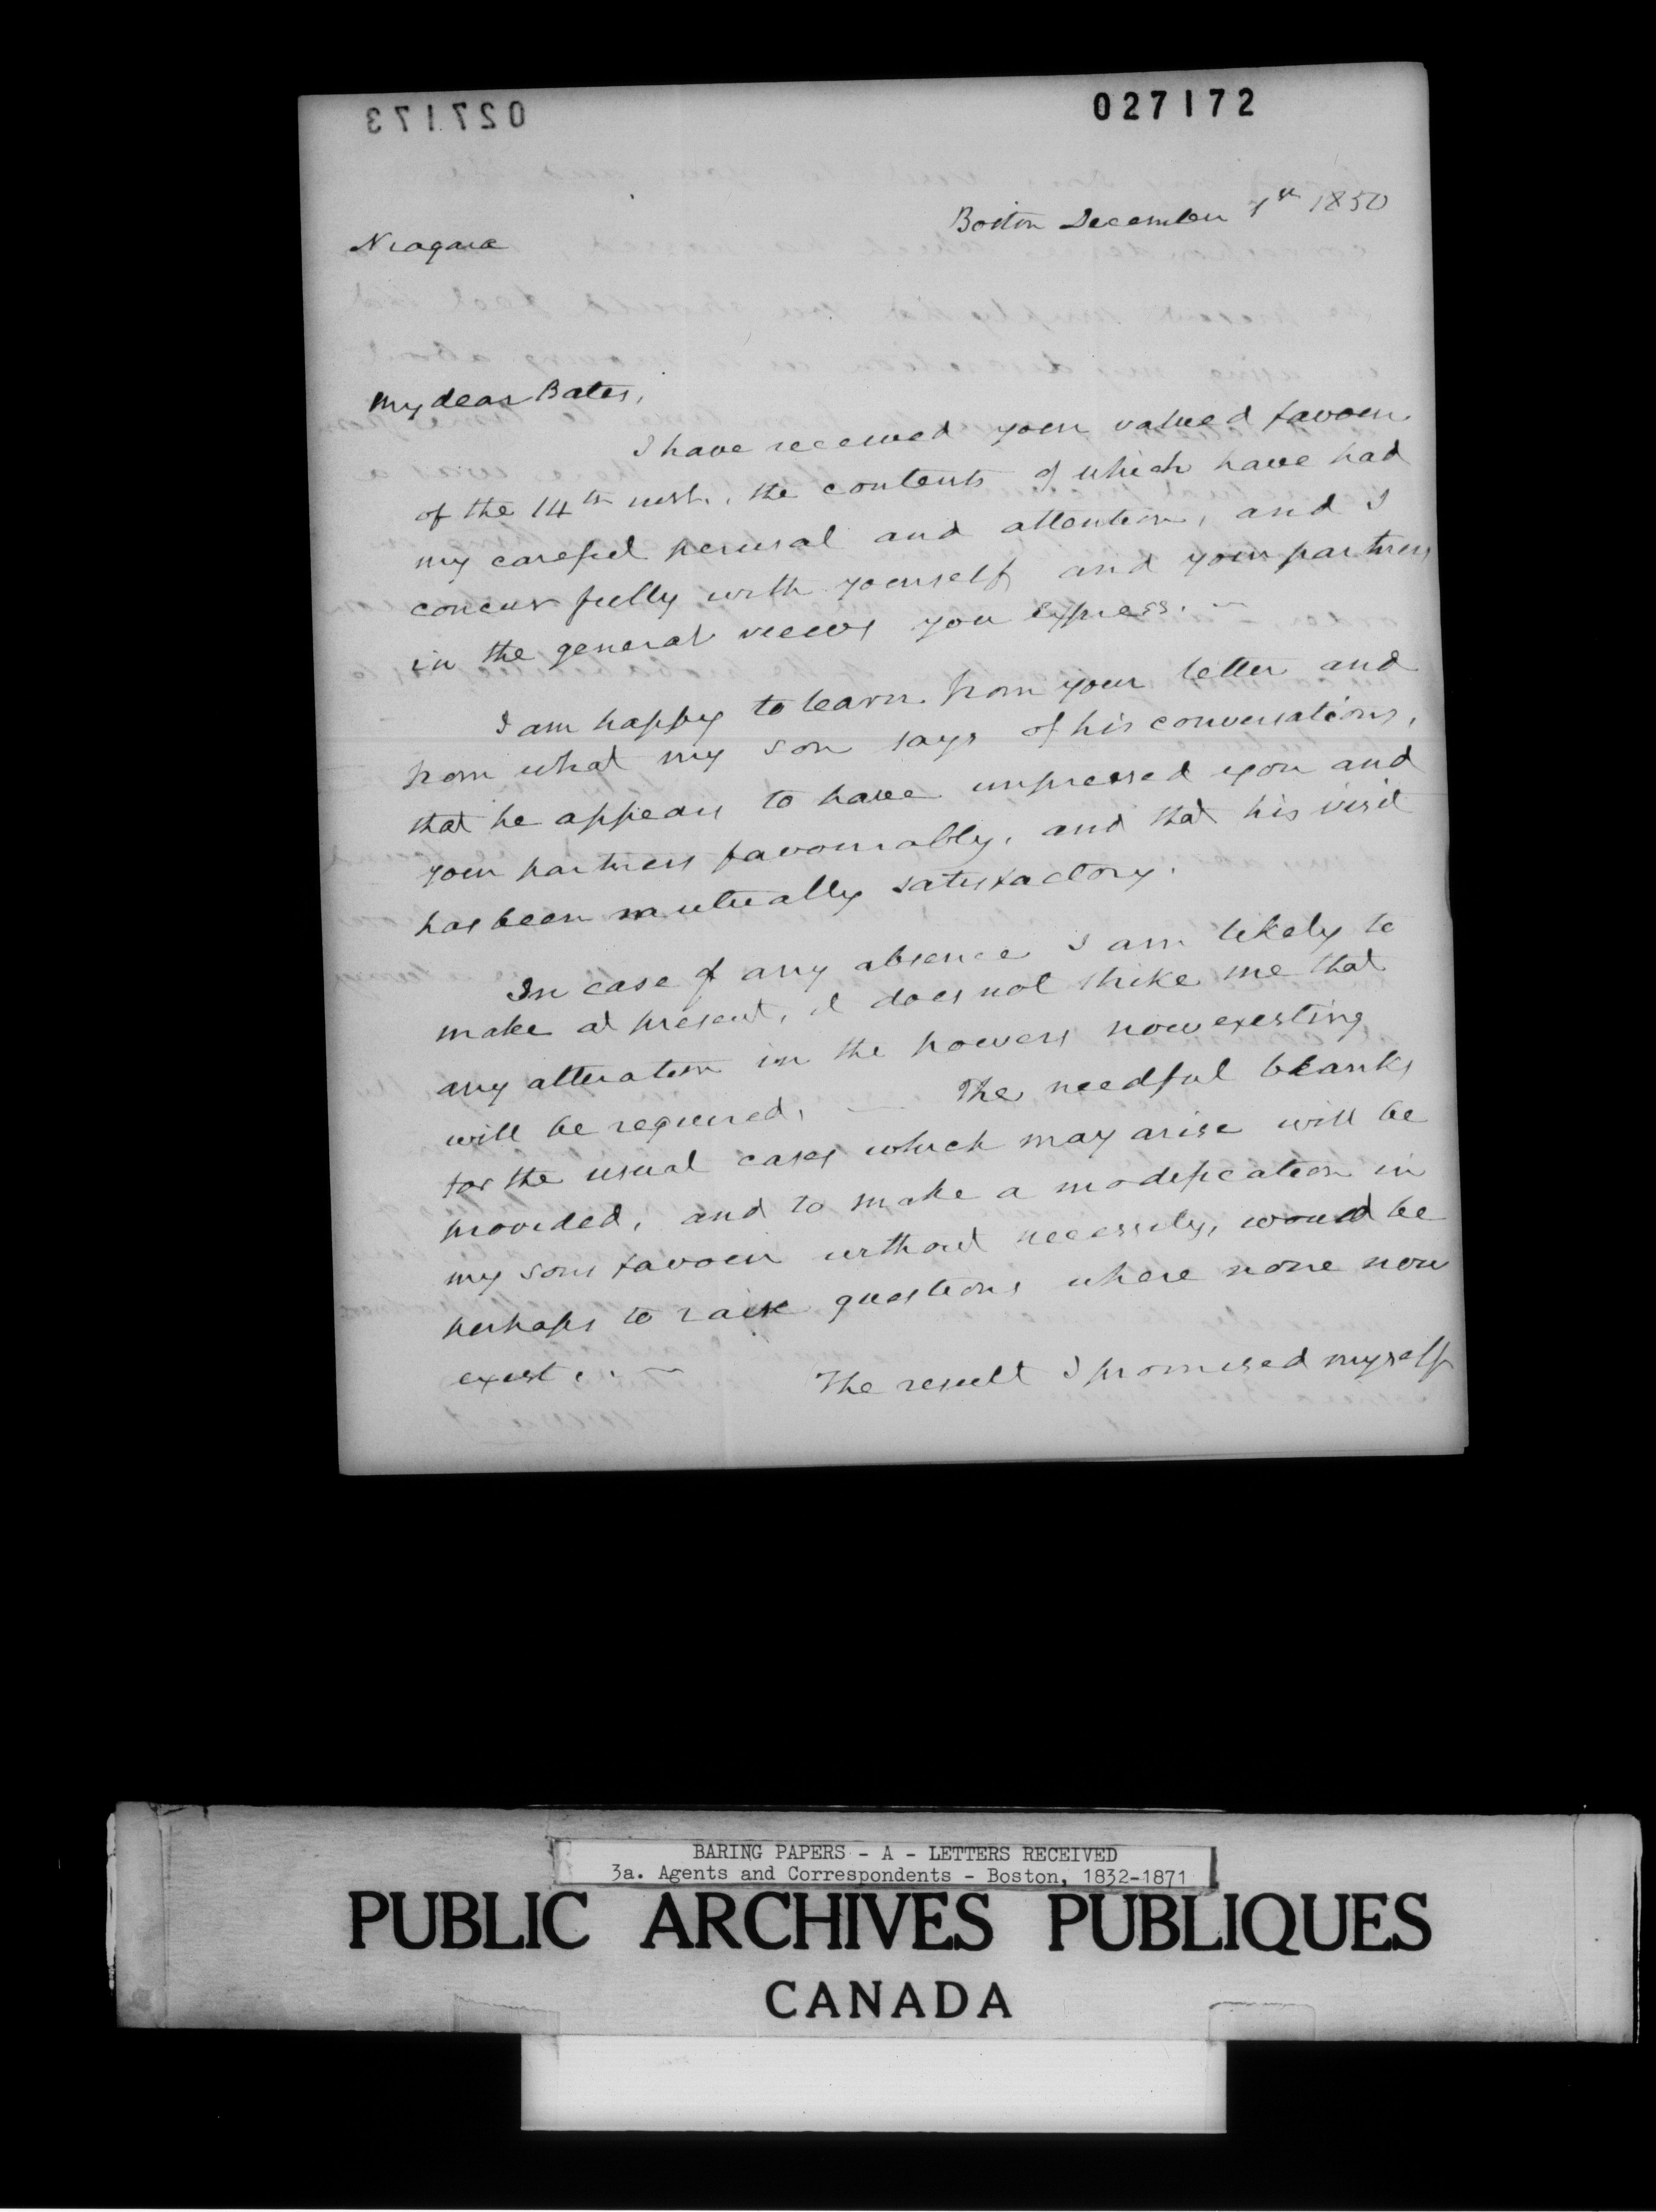 027173
027172
Boston December 7th 1850
Niagara
My dear Bates,
I have received your valued favour
of the 14th inst. the contents of which have had
my careful perusal and attention, and I
concur fully with yourself and your partners
in the general views you express. —
I am happy to learn from your letter and
from what my son says of his conversations,
that he appears to have impressed you and
your partners favourably, and that his visit
has been mutually satisfactory.
In case of any absence I am likely to
make at present, it does not strike me that
any alteration in the powers now existing
will be required. — The needful blanks
for the usual cases which may arise will be
provided, and to make a modification in
my sons favour without necessity, would be
perhaps to raise questions where none now
exist. . — The result I promised myself
BARING PAPERS - A - LETTERS RECEIVED
3a. Agents and Correspondents - Boston, 1832-1871
PUBLIC ARCHIVES PUBLIQUES
CANADA